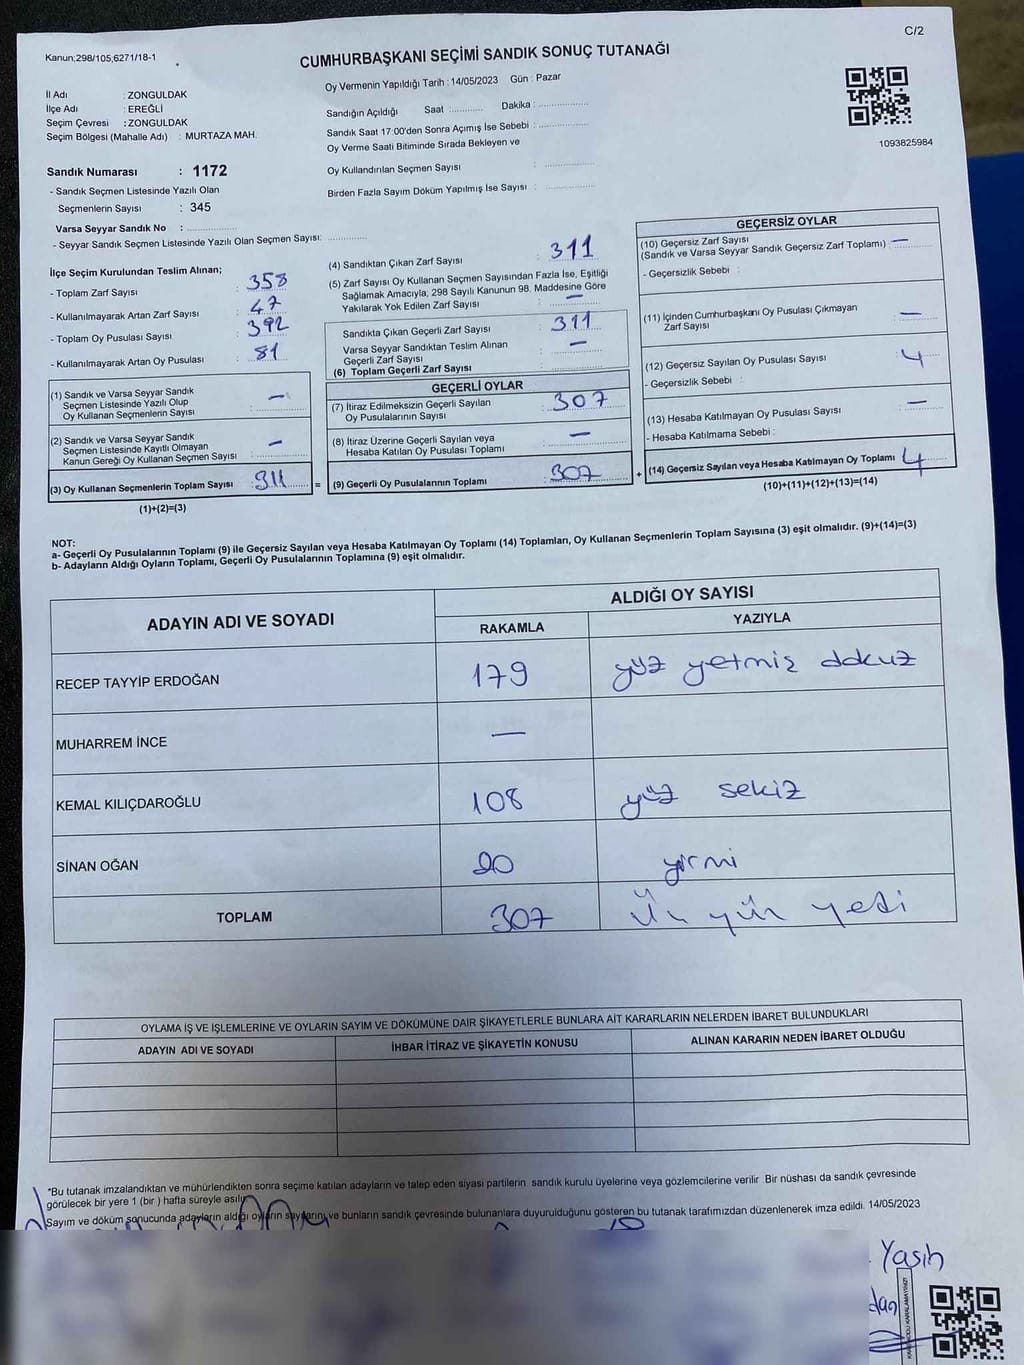 C/2
Kanun;298/105;6271/18-1
CUMHURBAŞKANI SEÇİMİ SANDIK SONUÇ TUTANAĞI
İl Adı : ZONGULDAK
İlçe Adı : EREĞLİ
Seçim Çevresi : ZONGULDAK
Seçim Bölgesi (Mahalle Adı) : MURTAZA MAH.
Oy Vermenin Yapıldığı Tarih : 14/05/2023 Gün : Pazar
Sandığın Açıldığı Saat :........... Dakika :................
Sandık Saat 17:00'den Sonra Açımış İse Sebebi :................
Oy Verme Saati Bitiminde Sırada Bekleyen ve
Oy Kullandırılan Seçmen Sayısı :................
Birden Fazla Sayım Döküm Yapılmış İse Sayısı :................
1093825984
Sandık Numarası : 1172
- Sandık Seçmen Listesinde Yazılı Olan
Seçmenlerin Sayısı : 345
Varsa Seyyar Sandık No :................
- Seyyar Sandık Seçmen Listesinde Yazılı Olan Seçmen Sayısı:............
İlçe Seçim Kurulundan Teslim Alınan;
- Toplam Zarf Sayısı : 358
- Kullanılmayarak Artan Zarf Sayısı : 47
- Toplam Oy Pusulası Sayısı : 392
- Kullanılmayarak Artan Oy Pusulası : 81
(1) Sandık ve Varsa Seyyar Sandık
Seçmen Listesinde Yazılı Olup
Oy Kullanan Seçmenlerin Sayısı : —
(2) Sandık ve Varsa Seyyar Sandık
Seçmen Listesinde Kayıtlı Olmayan
Kanun Gereği Oy Kullanan Seçmen Sayısı : —
(3) Oy Kullanan Seçmenlerin Toplam Sayısı : 311 =
(1)+(2)=(3)
(4) Sandıktan Çıkan Zarf Sayısı : 311
(5) Zarf Sayısı Oy Kullanan Seçmen Sayısından Fazla İse, Eşitliği
Sağlamak Amacıyla; 298 Sayılı Kanunun 98. Maddesine Göre
Yakılarak Yok Edilen Zarf Sayısı : —
Sandıkta Çıkan Geçerli Zarf Sayısı : 311
Varsa Seyyar Sandıktan Teslim Alınan
Geçerli Zarf Sayısı : —
(6) Toplam Geçerli Zarf Sayısı
GEÇERLİ OYLAR
(7) İtiraz Edilmeksizin Geçerli Sayılan
Oy Pusulalarının Sayısı : 307
(8) İtiraz Üzerine Geçerli Sayılan veya
Hesaba Katılan Oy Pusulası Toplamı : —
(9) Geçerli Oy Pusulalarının Toplamı : 307 +
GEÇERSİZ OYLAR
(10) Geçersiz Zarf Sayısı
(Sandık ve Varsa Seyyar Sandık Geçersiz Zarf Toplamı) : —
- Geçersizlik Sebebi :
(11) İçinden Cumhurbaşkanı Oy Pusulası Çıkmayan
Zarf Sayısı : —
(12) Geçersiz Sayılan Oy Pusulası Sayısı : 4
- Geçersizlik Sebebi :
(13) Hesaba Katılmayan Oy Pusulası Sayısı : —
- Hesaba Katılmama Sebebi :
(14) Geçersiz Sayılan veya Hesaba Katılmayan Oy Toplamı : 4
(10)+(11)+(12)+(13)=(14)
NOT:
a- Geçerli Oy Pusulalarının Toplamı (9) ile Geçersiz Sayılan veya Hesaba Katılmayan Oy Toplamı (14) Toplamları, Oy Kullanan Seçmenlerin Toplam Sayısına (3) eşit olmalıdır. (9)+(14)=(3)
b- Adayların Aldığı Oyların Toplamı, Geçerli Oy Pusulalarının Toplamına (9) eşit olmalıdır.
ADAYIN ADI VE SOYADI ALDIĞI OY SAYISI
RAKAMLA YAZIYLA
RECEP TAYYİP ERDOĞAN 179 yüz yetmiş dokuz
MUHARREM İNCE —
KEMAL KILIÇDAROĞLU 108 yüz sekiz
SİNAN OĞAN 20 yirmi
TOPLAM 307 Üç yüz yedi
OYLAMA İŞ VE İŞLEMLERİNE VE OYLARIN SAYIM VE DÖKÜMÜNE DAİR ŞİKAYETLERLE BUNLARA AİT KARARLARIN NELERDEN İBARET BULUNDUKLARI
ADAYIN ADI VE SOYADI İHBAR İTİRAZ VE ŞİKAYETİN KONUSU ALINAN KARARIN NEDEN İBARET OLDUĞU
*Bu tutanak imzalandıktan ve mühürlendikten sonra seçime katılan adayların ve talep eden siyasi partilerin sandık kurulu üyelerine veya gözlemcilerine verilir .Bir nüshası da sandık çevresinde
görülecek bir yere 1 (bir ) hafta süreyle asılır.
Sayım ve döküm sonucunda adayların aldığı oyların sayılarını ve bunların sandık çevresinde bulunanlara duyurulduğunu gösteren bu tutanak tarafımızdan düzenlenerek imza edildi. 14/05/2023
Yasin